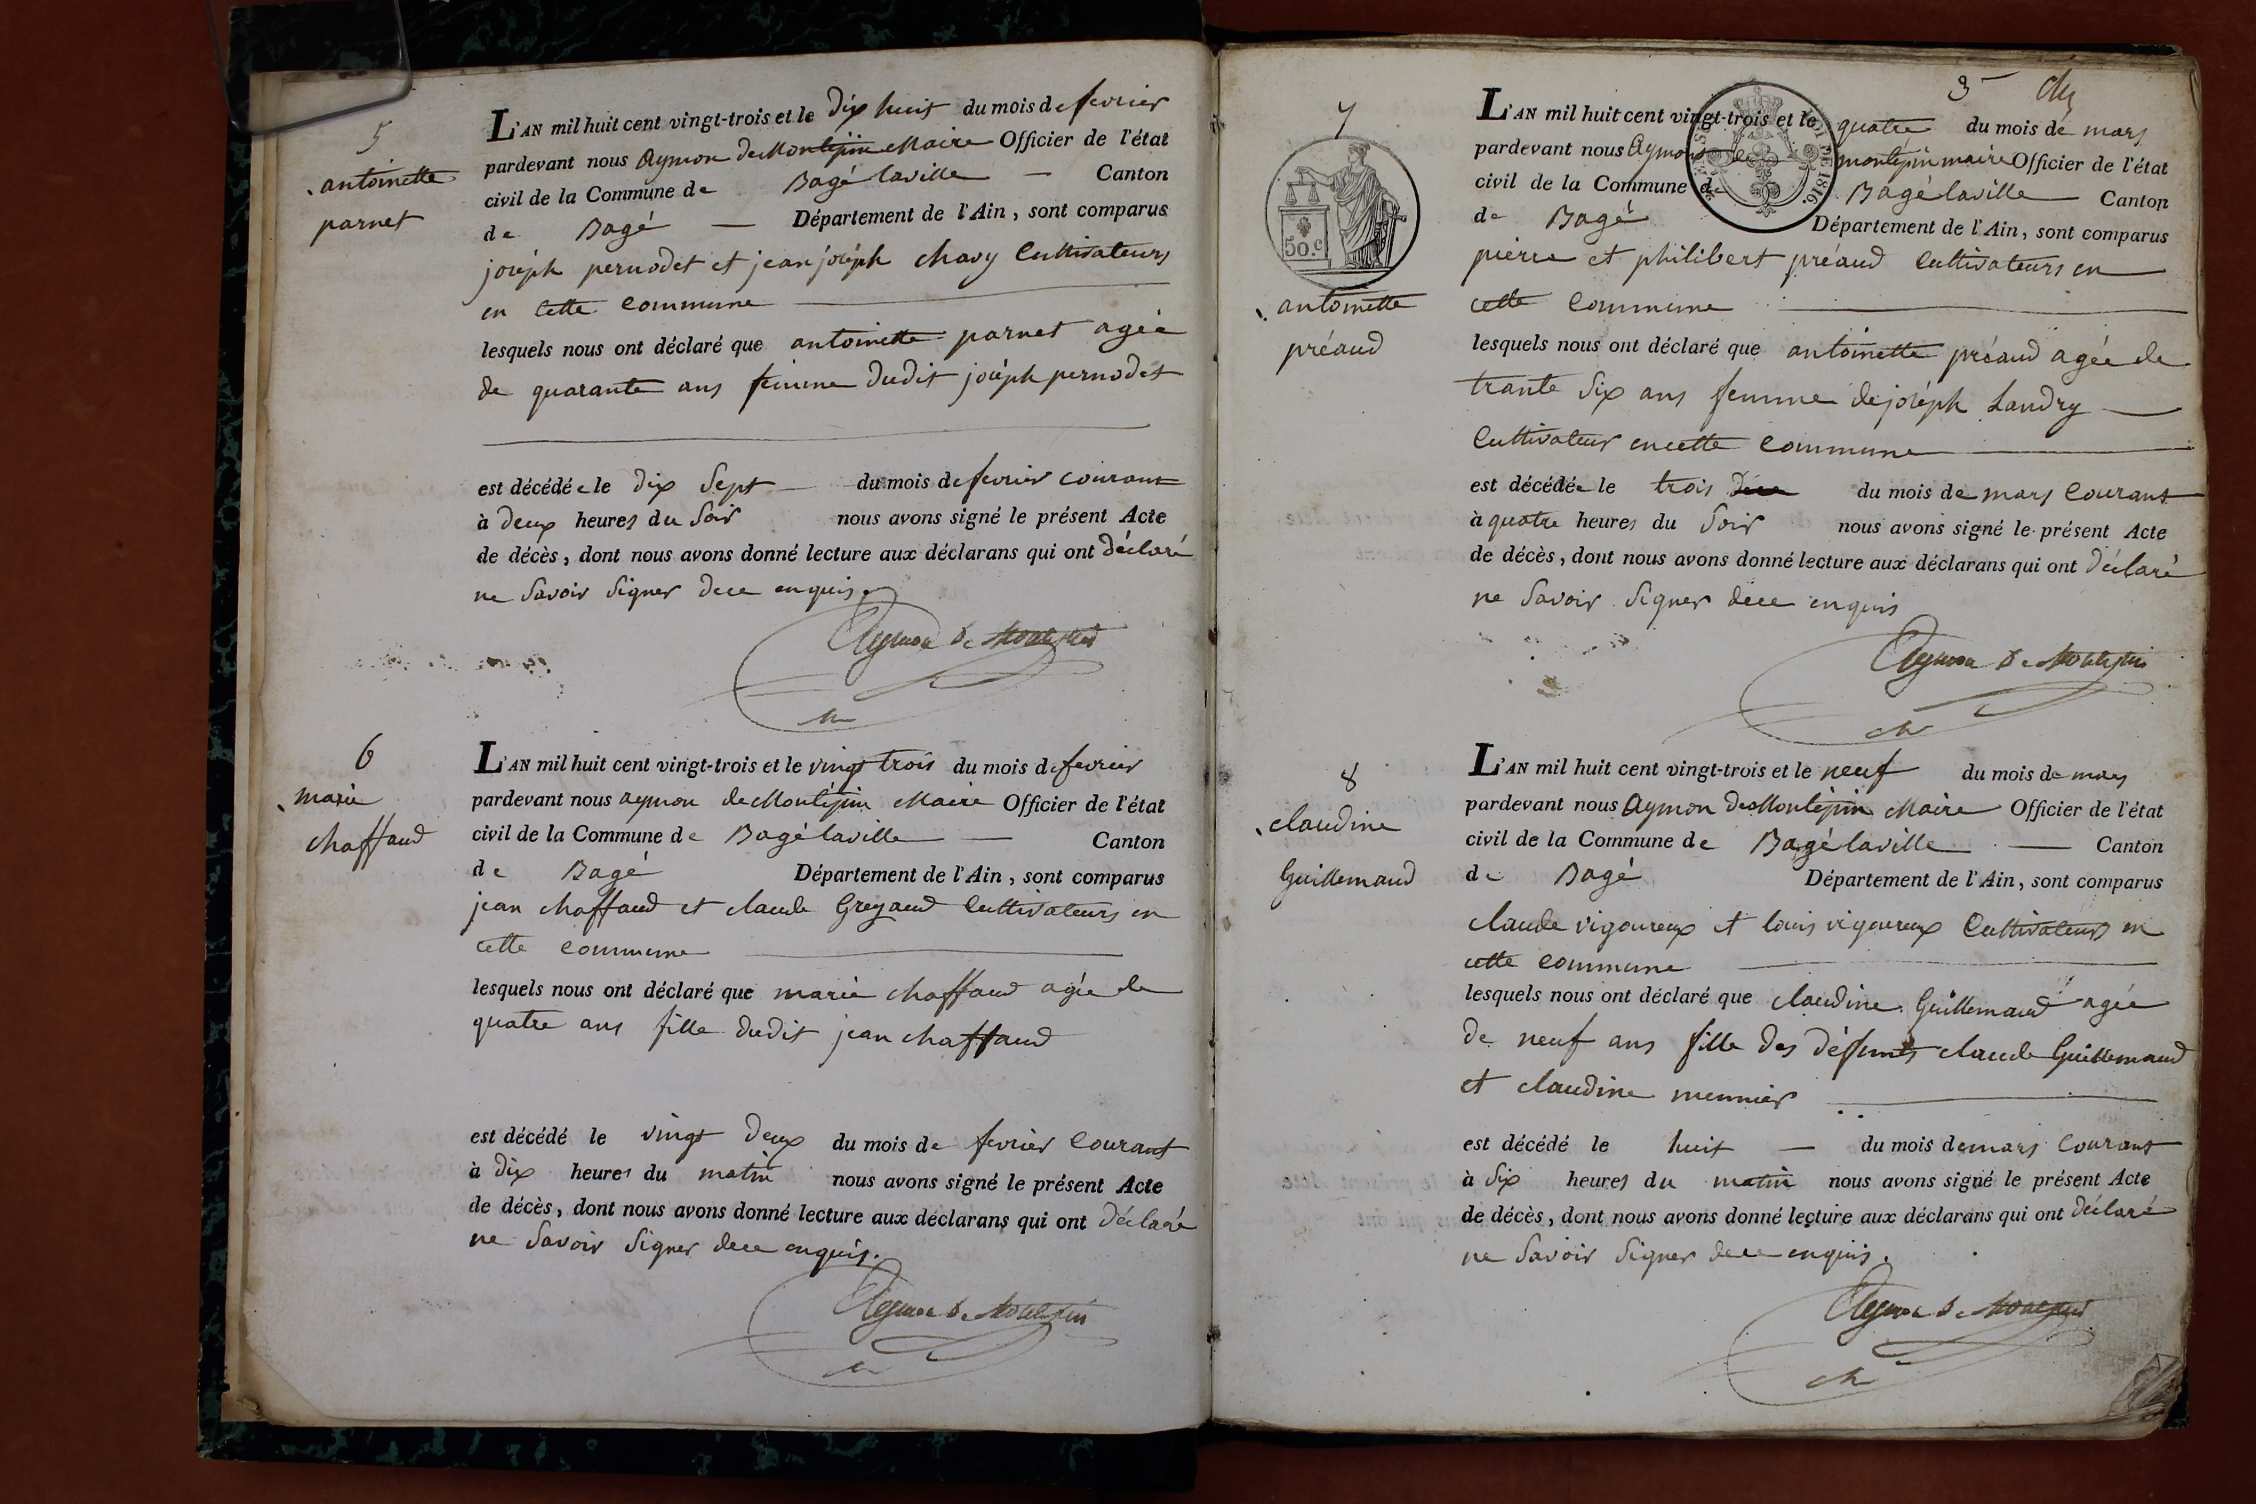 5
antoinette
parnet
L'AN mil huit cent vingt-trois et le dix huit du mois de fevrier
pardevant nous Aymon de Montépin Maire Officier de l'état
civil de la Commune de Bagé laville — Canton
de Bagé — Département de l'Ain, sont comparus
joséph pernodet et jean joséph chavy Cultivateurs
en cette commune
lesquels nous ont déclaré que antoinette parnet agée
de quarante ans femme dudit joséph pernodet
est décédée le dix Sept du mois de fevrier courant
à deux heures du Soir nous avons signé le présent Acte
de décès, dont nous avons donné lecture aux déclarans qui ont déclaré
ne Savoir Signer de ce enquis.
Aymon de Montépin
6
marie
chaffaud
L'AN mil huit cent vingt-trois et le vingt trois du mois de fevrier
pardevant nous aymon de Montépin Maire Officier de l'état
civil de la Commune de Bagé laville — Canton
de Bagé Département de l'Ain, sont comparus
jean chaffaud et claude Greyaud Cultivateurs en
cette commune
lesquels nous ont déclaré que marie chaffaud agée de
quatre ans fille dudit jean chaffaud
est décédé le vingt deux du mois de fevrier Courant
à dix heures du matin nous avons signé le présent Acte
de décès, dont nous avons donné lecture aux déclarans qui ont déclaré
ne Savoir Signer de ce enquis.
Aymon de Montépin
3
7
50.c
antoinette
préaud
1816.
L'AN mil huit cent vingt-trois et le quatre du mois de mars
pardevant nous Aymon de montépin maire Officier de l'état
civil de la Commune de Bagé laville Canton
de Bagé Département de l'Ain, sont comparus
pierre et philibert préaud Cultivateurs en
cette Commune
lesquels nous ont déclaré que antoinette préaud agée de
trante Six ans femme de joséph Landry
Cultivateur en cette Commune
est décédée le trois du mois de mars Courant
à quatre heures du Soir nous avons signé le présent Acte
de décès, dont nous avons donné lecture aux déclarans qui ont déclaré
ne Savoir Signer de ce enquis
Aymon de Montépin
8
claudine
Guillemaud
L'AN mil huit cent vingt-trois et le neuf du mois de mars
pardevant nous Aymon de Montépin Maire Officier de l'état
civil de la Commune de Bagé laville — Canton
de Bagé Département de l'Ain, sont comparus
claude vigoureux et louis vigoureux Cultivateurs en
cette Commune
lesquels nous ont déclaré que claudine Guillemaud agée
de neuf ans fille des défunts claude Guillemaud
et claudine meunier
est décédé le huit — du mois de mars Courant
à Six heures du matin nous avons signé le présent Acte
de décès, dont nous avons donné lecture aux déclarans qui ont déclaré
ne Savoir Signer de ce enquis.
Aymon de Montépin